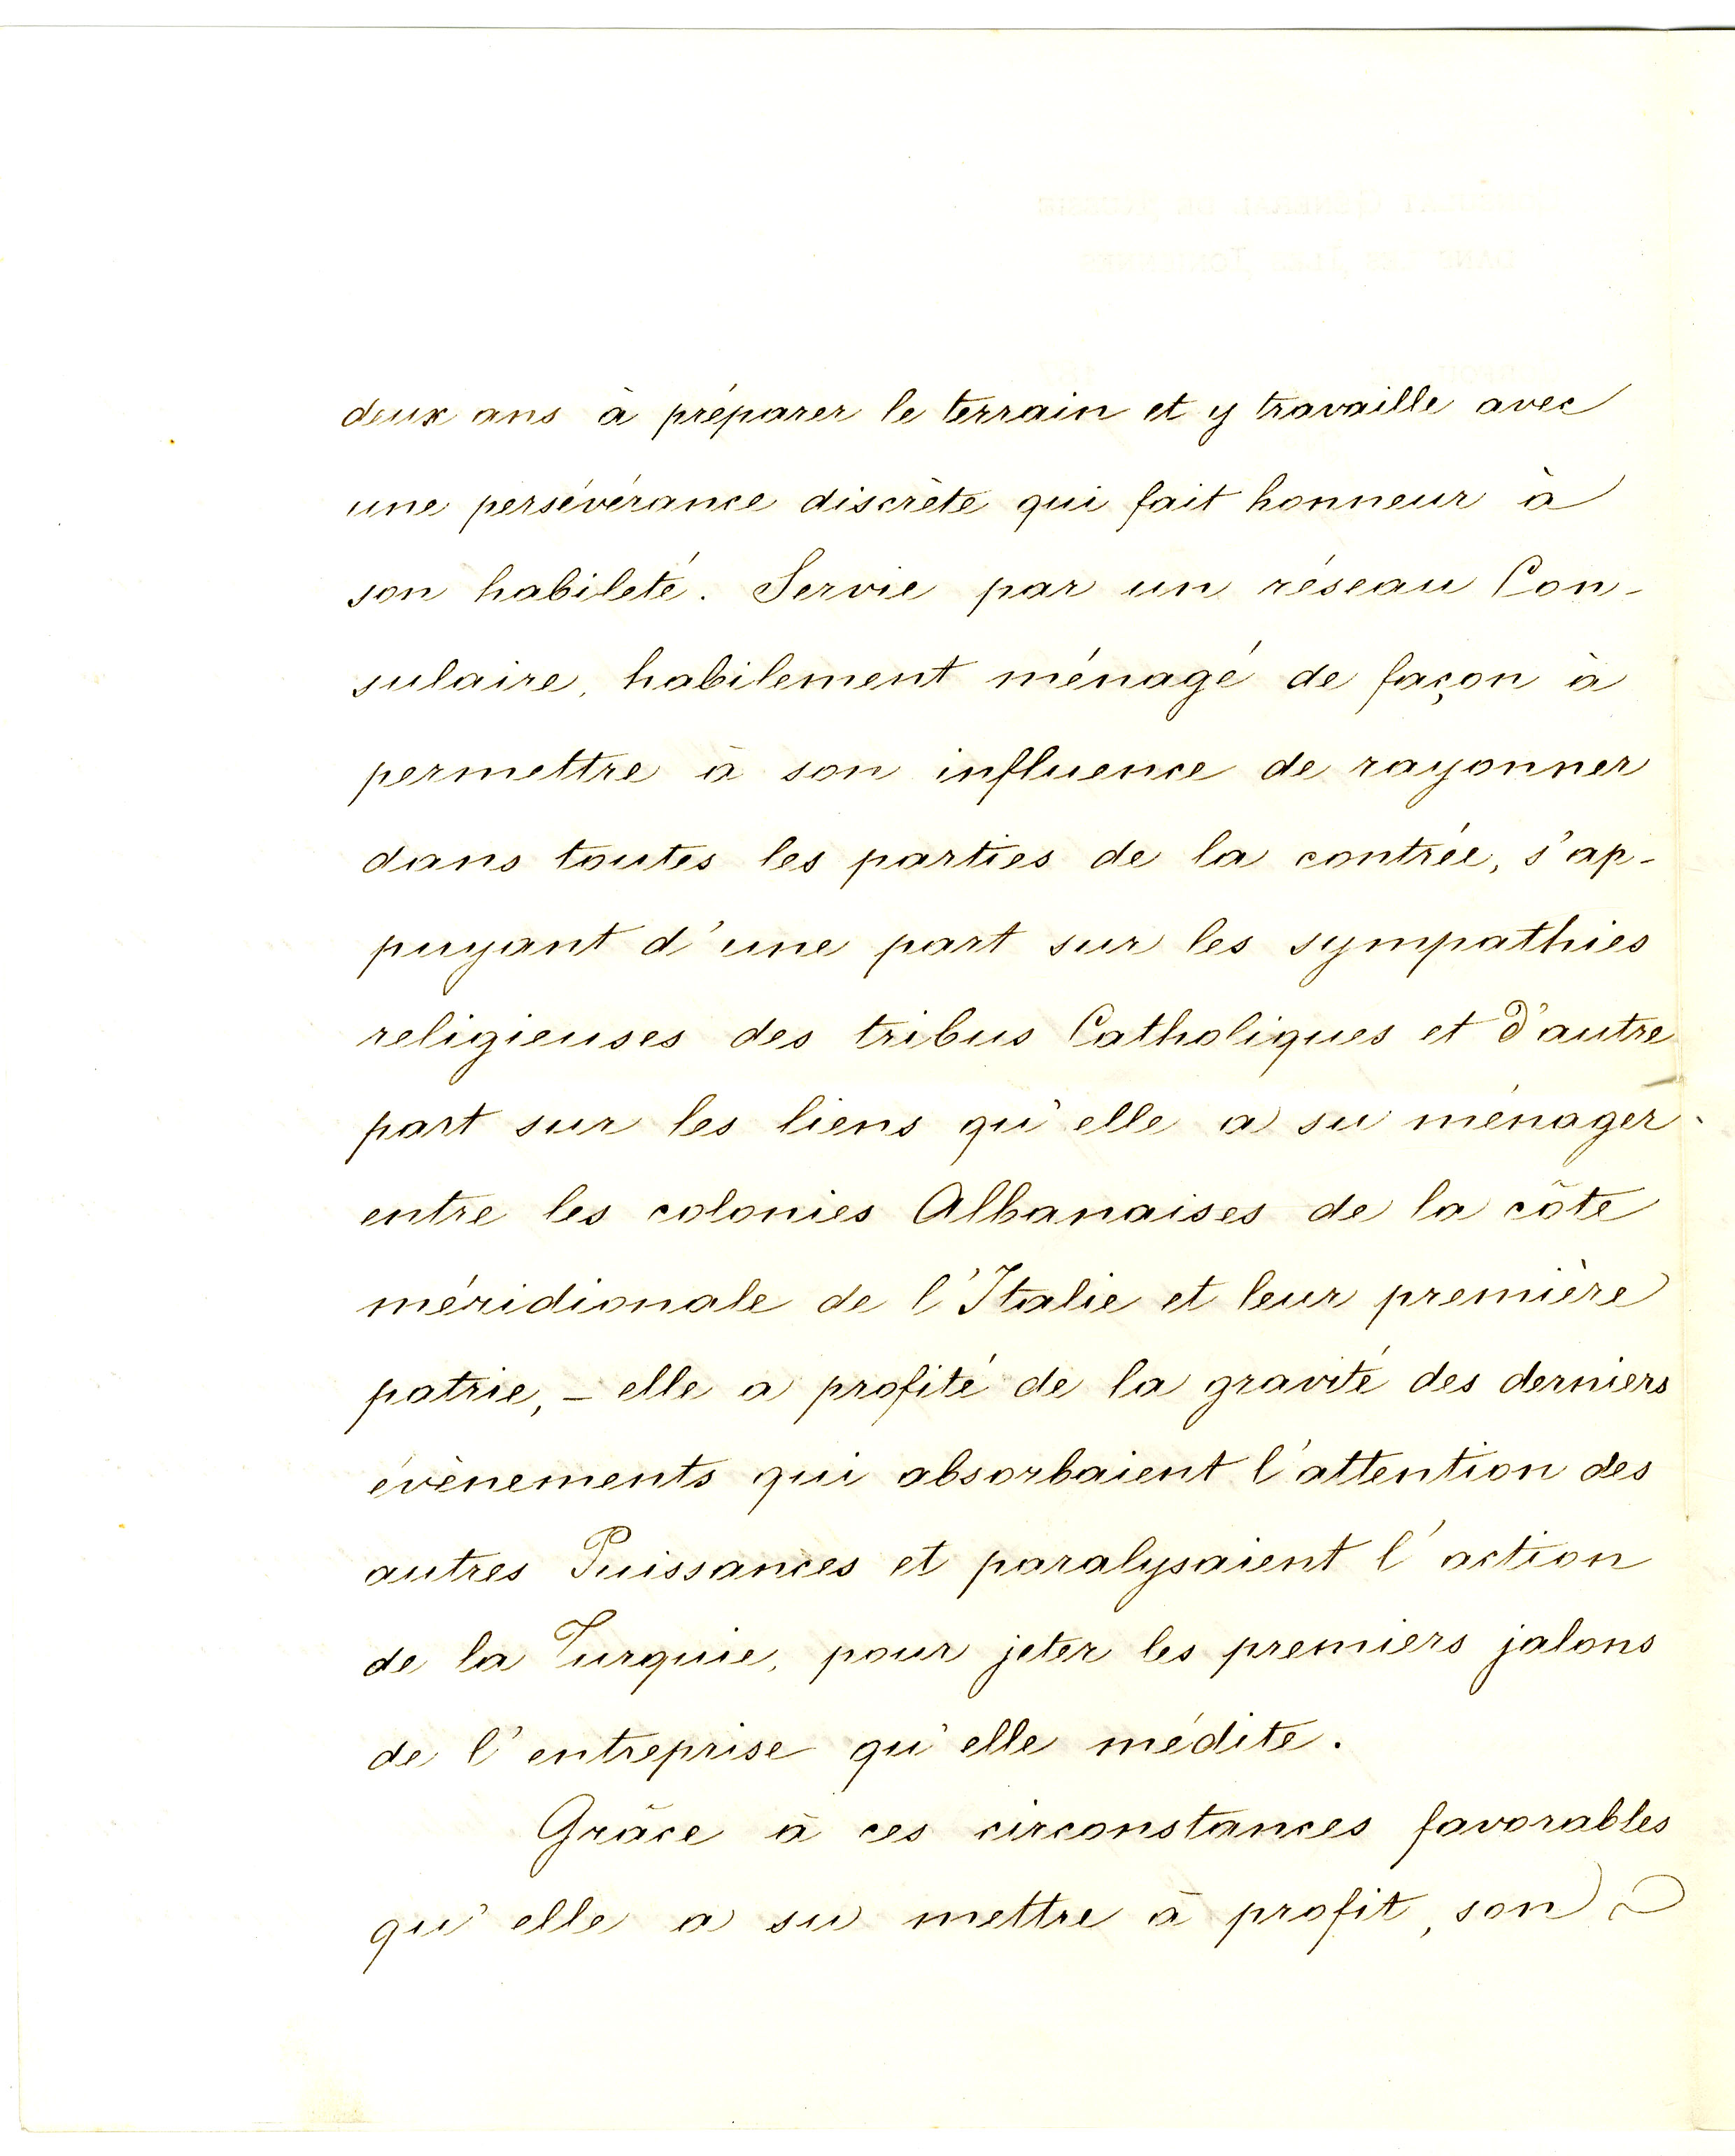 deux ans à préparer le terrain et y travaille avec
une persévérance discrète qui fait honneur à
son habileté. Servie par un réseau Con-
sulaire, habilement ménagé de façon à
permettre à son influence de rayonner
dans toutes les parties de la contrée, s'ap-
puyant d'une part sur les sympathies
religieuses des tribus Catholiques et d'autre
part sur les liens qu'elle a su ménager
entre les colonies Albanaises de la côte
méridionale de l'Italie et leur première
patrie, – elle a profité de la gravité des derniers
évènements qui absorbaient l'attention des
autres Puissances et paralysaient l'action
de la Turquie, pour jeter les premiers jalons
de l'entreprise qu'elle médite.
Grâce à ces circonstances favorables
qu'elle a su mettre à profit, son